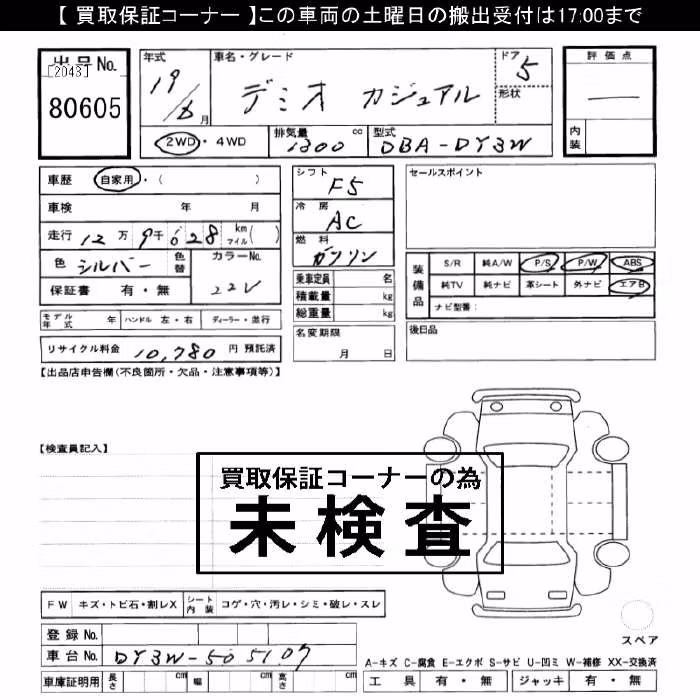 【 買取保証コーナー 】この車両の土曜日の搬出受付は17:00まで
出品No.
[2043]
80605
年式
19/6月
車名・グレード
デミオ カジュアル
ドア 5
形状
評価点
―
内装
2WD・4WD
排気量 1300 cc
型式 DBA-DY3W
車歴 自家用・( )
車検 年 月
走行 12万9千628 km マイル( )
色 シルバー 色替
カラーNo. 22V
保証書 有・無
シフト F5
冷房 AC
燃料 ガソリン
乗車定員 名
積載量 kg
総重量 kg
セールスポイント
装備品
S/R 純A/W P/S P/W ABS
純TV 純ナビ 革シート 外ナビ エアB
ナビ型番:
モデル年式 年 ハンドル 左・右 ディーラー・並行
名変期限 月 日
後日品
リサイクル料金 10,780 円 預託済
【出品店申告欄(不良箇所・欠品・注意事項等)】
【検査員記入】
買取保証コーナーの為
未検査
FW キズ・トビ石・割レX シート内装 コゲ・穴・汚レ・シミ・破レ・スレ
登録No.
車台No. DY3W-505107
車庫証明用 長さ cm 幅 cm 高さ cm
スペア
A-キズ C-腐食 E-エクボ S-サビ U-凹ミ W-補修 XX-交換済
工具 有・無 ジャッキ 有・無